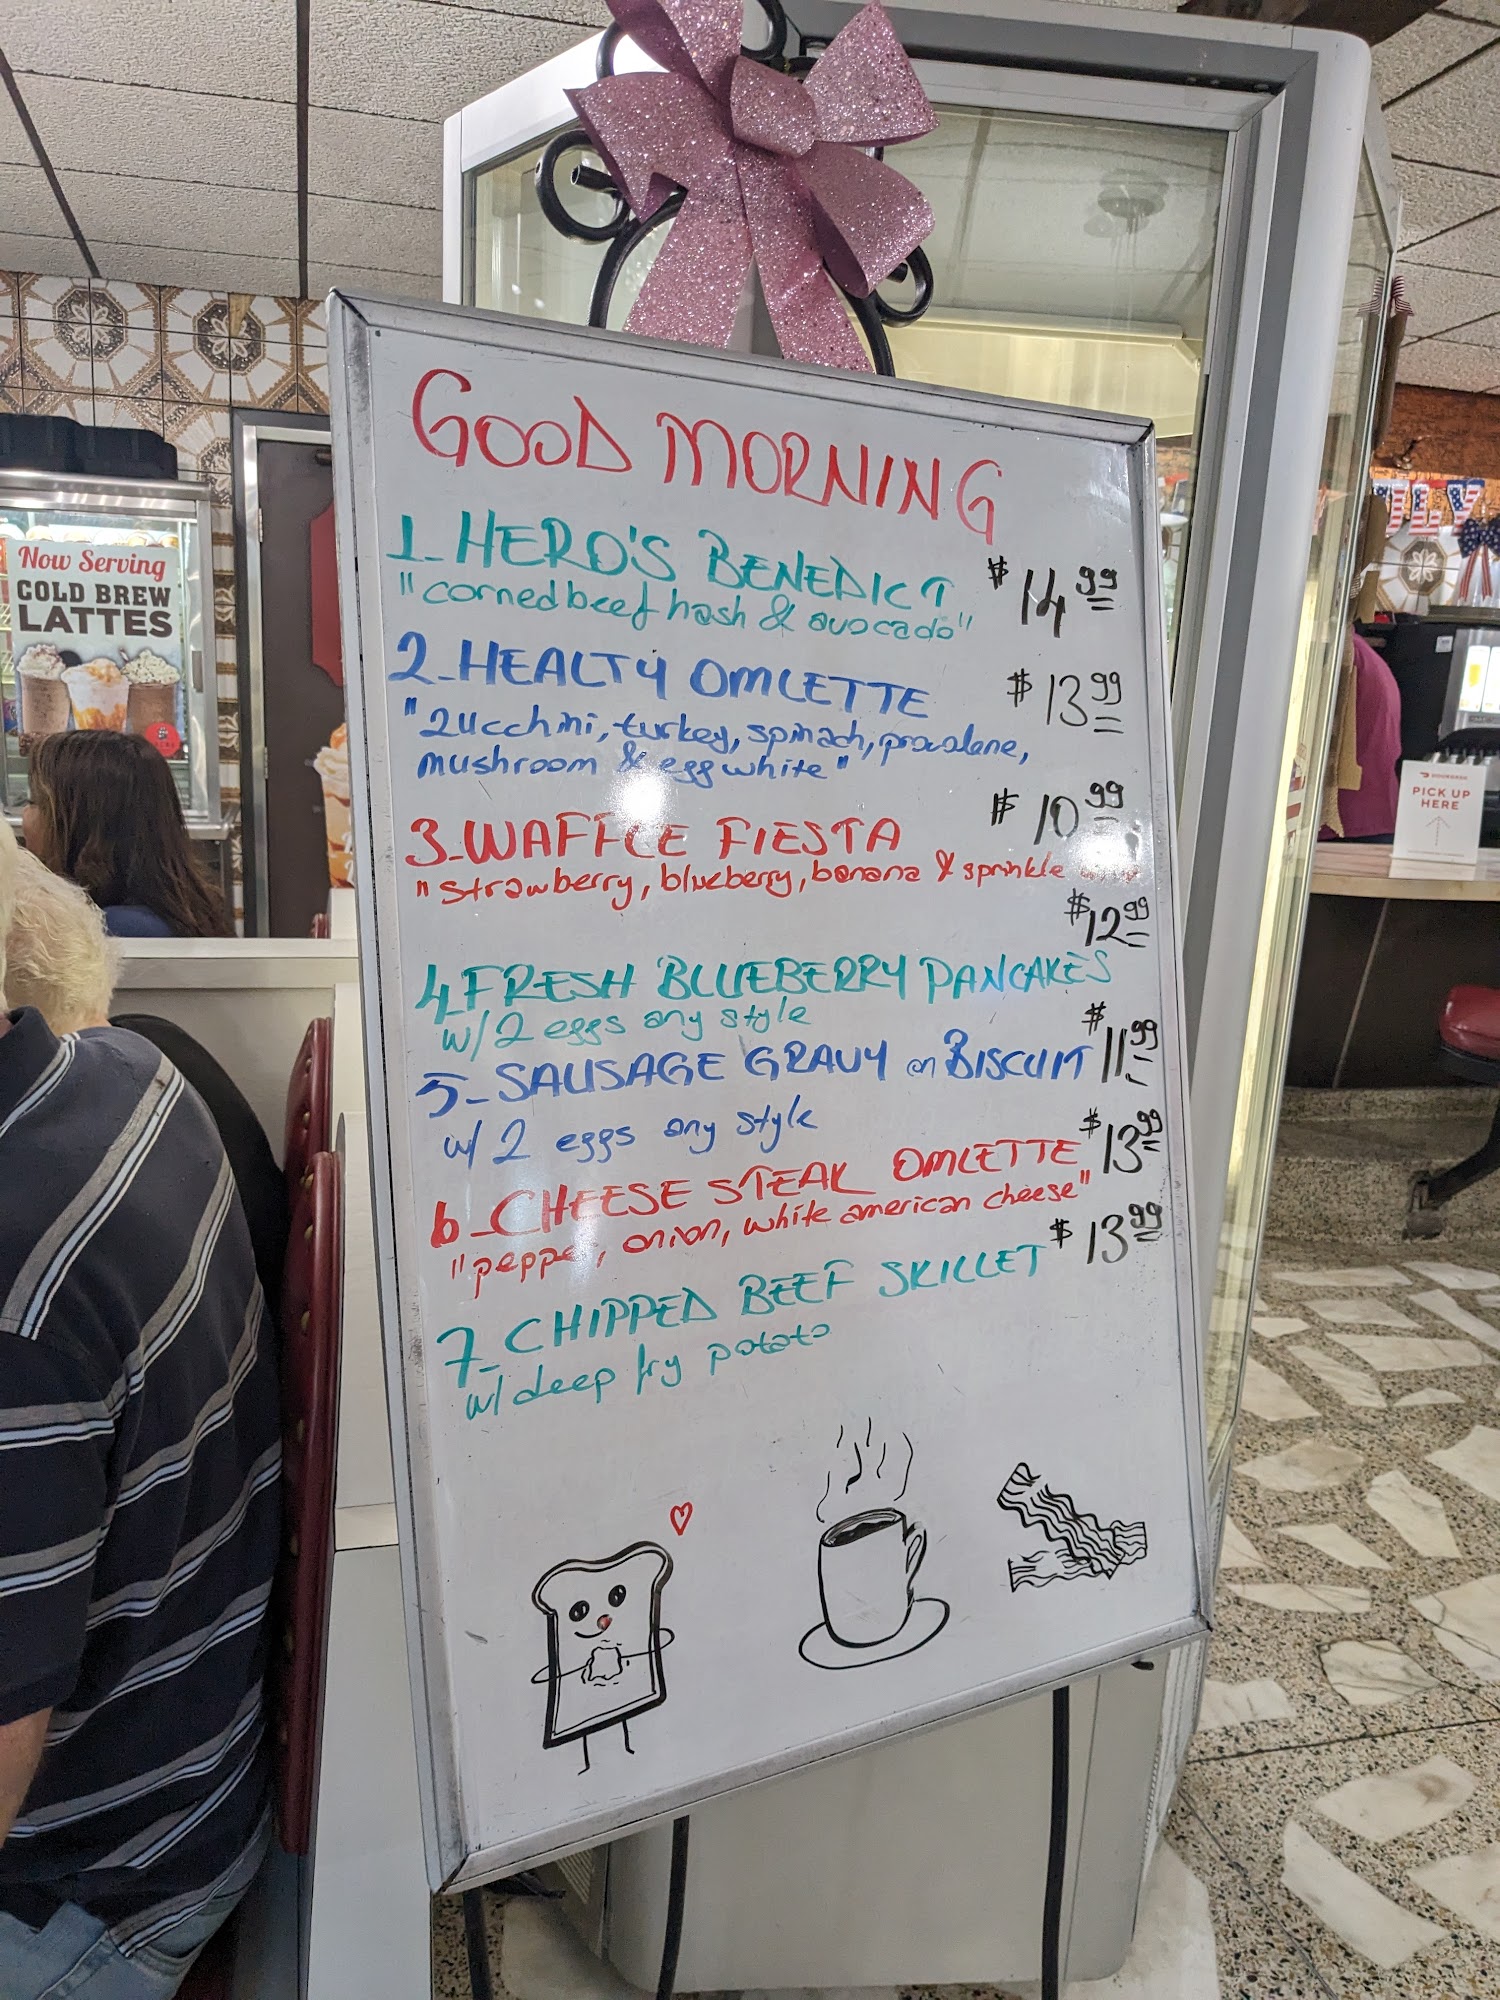 GOOD MORNING
1- HERO'S BENEDICT $14.99
"corned beef hash & avocado"
2- HEALTY OMLETTE $13.99
"zucchini, turkey, spinach, provolone,
mushroom & egg white"
3- WAFFLE FIESTA $10.99
"strawberry, blueberry, banana & sprinkle
$12.99
4- FRESH BLUEBERRY PANCAKES
w/ 2 eggs any style
5- SAUSAGE GRAVY on BISCUIT $11.99
w/ 2 eggs any style
6- CHEESE STEAK OMLETTE $13.99
"pepper, onion, white american cheese"
7- CHIPPED BEEF SKILLET $13.99
w/ deep fry potato
Now Serving
COLD BREW
LATTES
DOORDASH
PICK UP
HERE